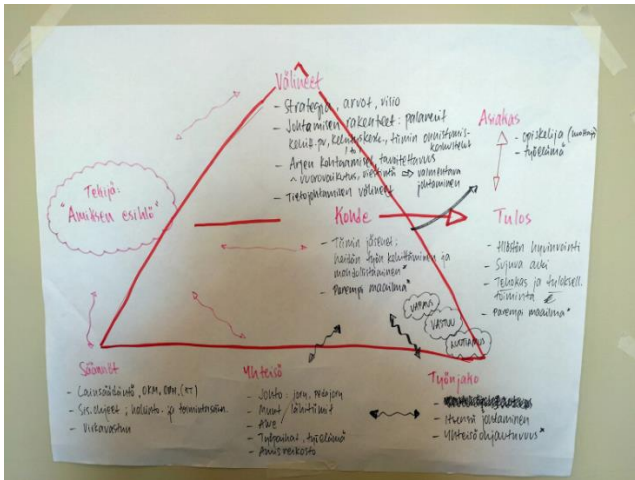 Välineet
- Strategia, arvot, visio
- Johtamisen rakenteet: palaverit
kehit.pv, tiimin
- Arjen kohtaamiset, tavoitettavuus
^ vuorovaikutus, viestintä ⇒ valmentava
johtaminen
- Tietojohtamisen välineet
Asiakas
- opiskelija
- työelämä"
Tekijä:
"Amiksen esihlö"
Kohde
- Tiimin jäsenet;
heidän työn kehittäminen ja
mahdollistaminen"
- Parempi maailma"
Tulos
- Hlöstön hyvinvointi
- Sujuva arki
- Tehokas ja tuloksell.
toiminta
- Parempi maailma"
VAPAUS
VASTUU
LUOTTAMUS
Säännöt
- Lainsäädäntö, OKM, OPH, (KT)
- Sis. ohjeet; hallinto- ja toimintasään.
- Virkavastuu
Yhteisö
- Johto: jory, pedajory
- Muut / lähitiimit
- AWE
- Työpaikat, työelämä
- Amisverkosto
Työnjako
- Itsensä johtaminen
- Yhteisöohjautuvuus"